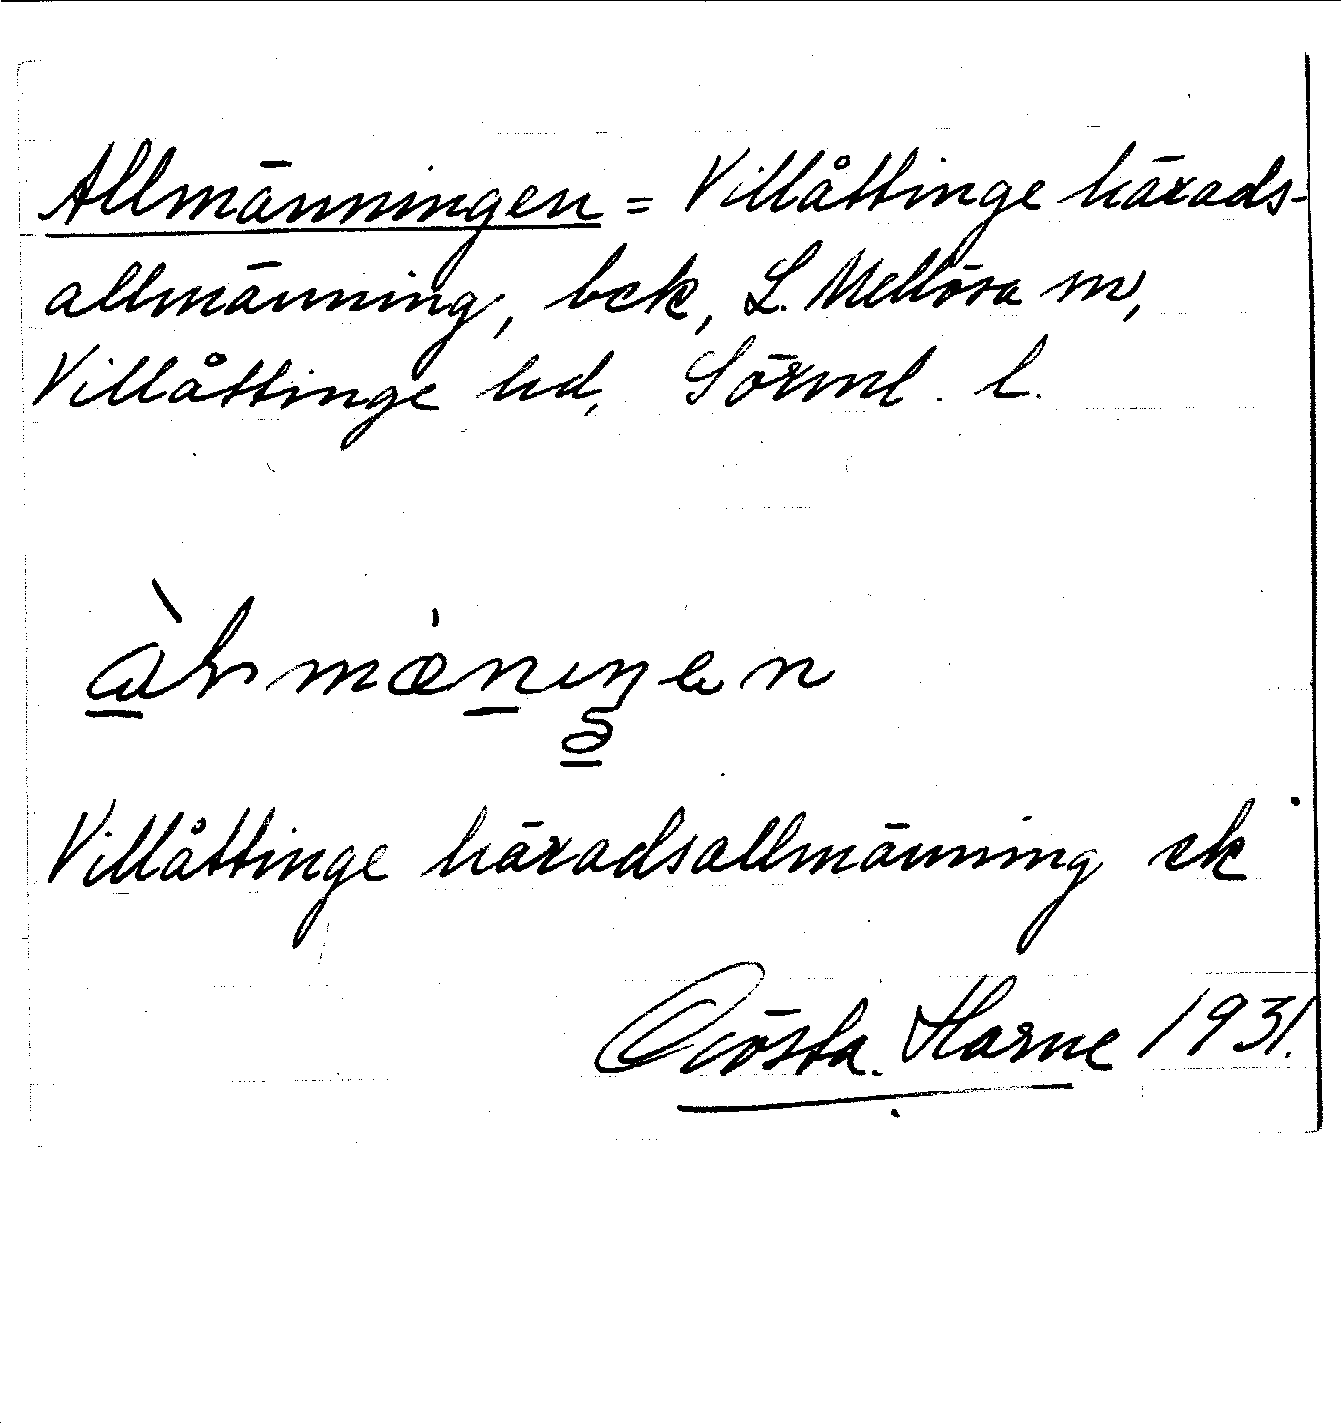 Allmänningen = Villåttinge härads-
allmänning, bek, L. Mellösa sn,
Villåttinge hd, Sörml. l.
Villåttinge häradsallmänning ek
Gösta Harne 1931.